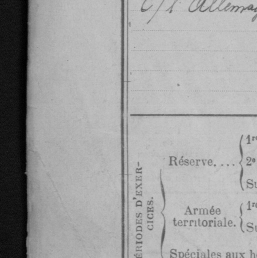 c/s Allemag
PÉRIODES D'EXER-
CICES.
Réserve, ...
1re
2e
Su
Armée
territoriale.
1re
Su
Spéciales aux h